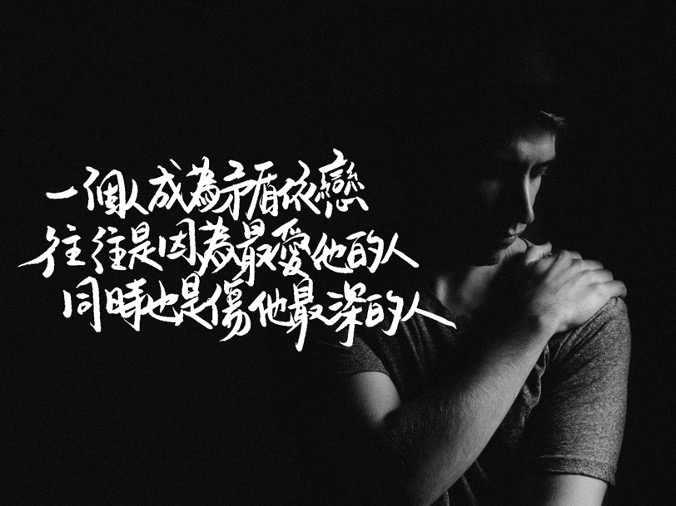 一個人成為矛盾依戀
往往是因為最愛他的人
同時也是傷他最深的人